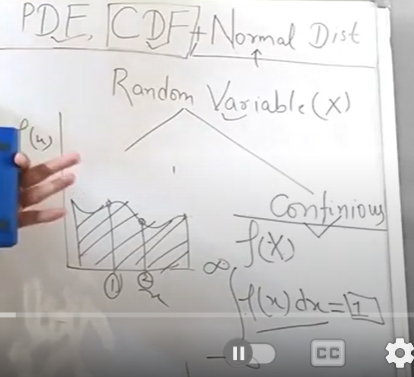 PDF, CDF + Normal Dist
Random Variable (X)
f(x)
Continious
f(X)
① ② x
∞
∫ f(x) dx = 1
-
CC